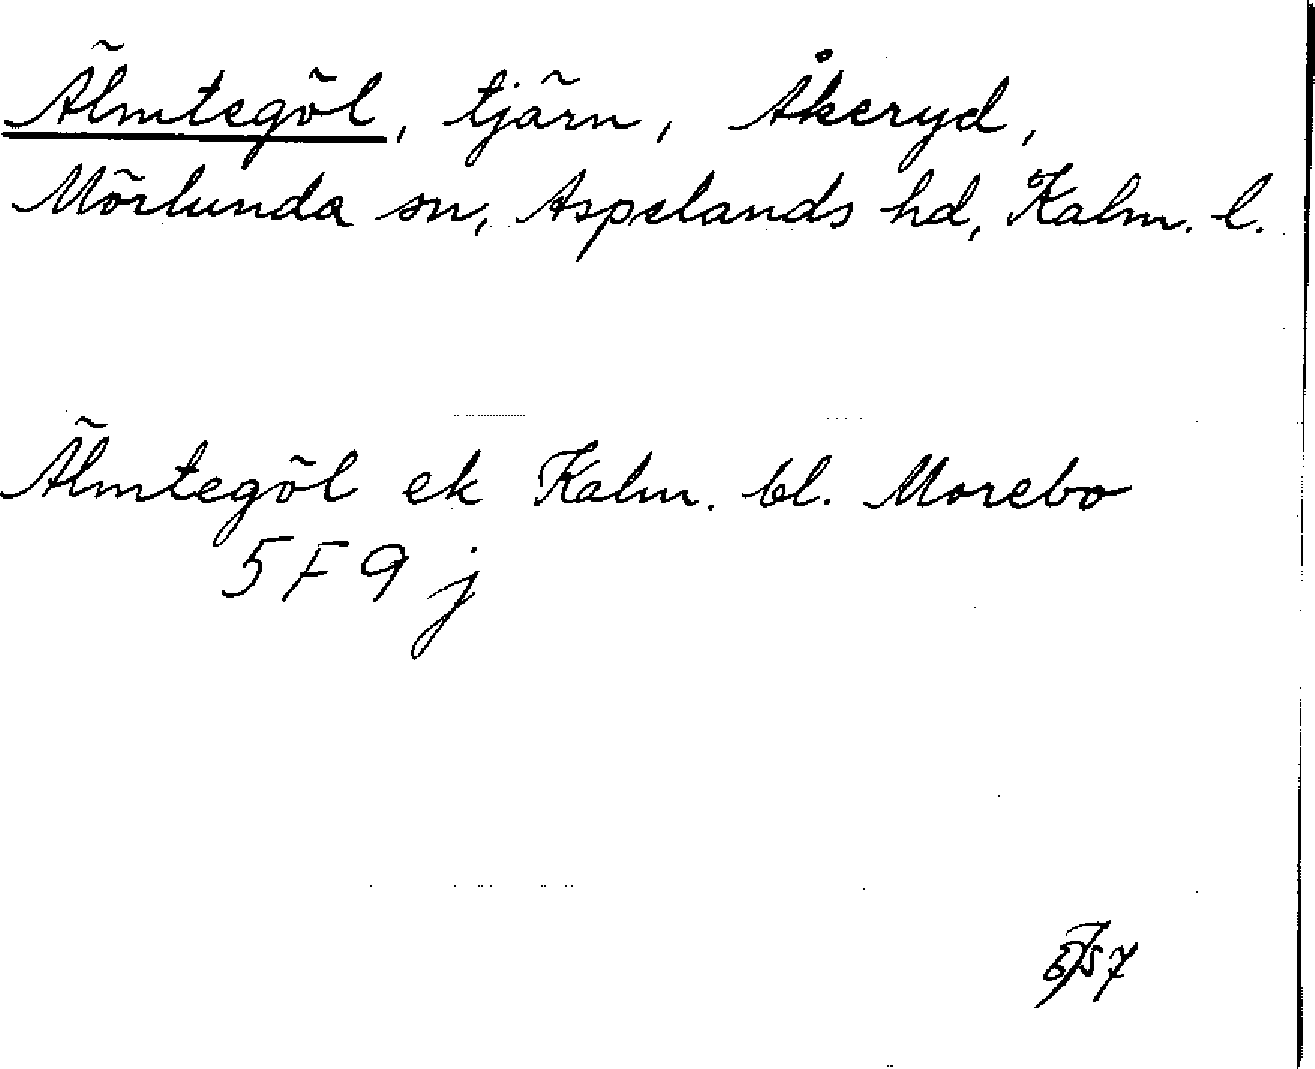 Älmtegöl, tjärn, Åkeryd,
Mörlunda sn, Aspelands hd, Kalm. l.
Älmtegöl ek Kalm. bl. Morebo
5 F 9 j